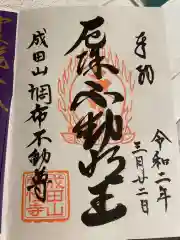 奉納
令和二年
三月廿二日
厄除不動明王
成田山調布不動尊
成田山